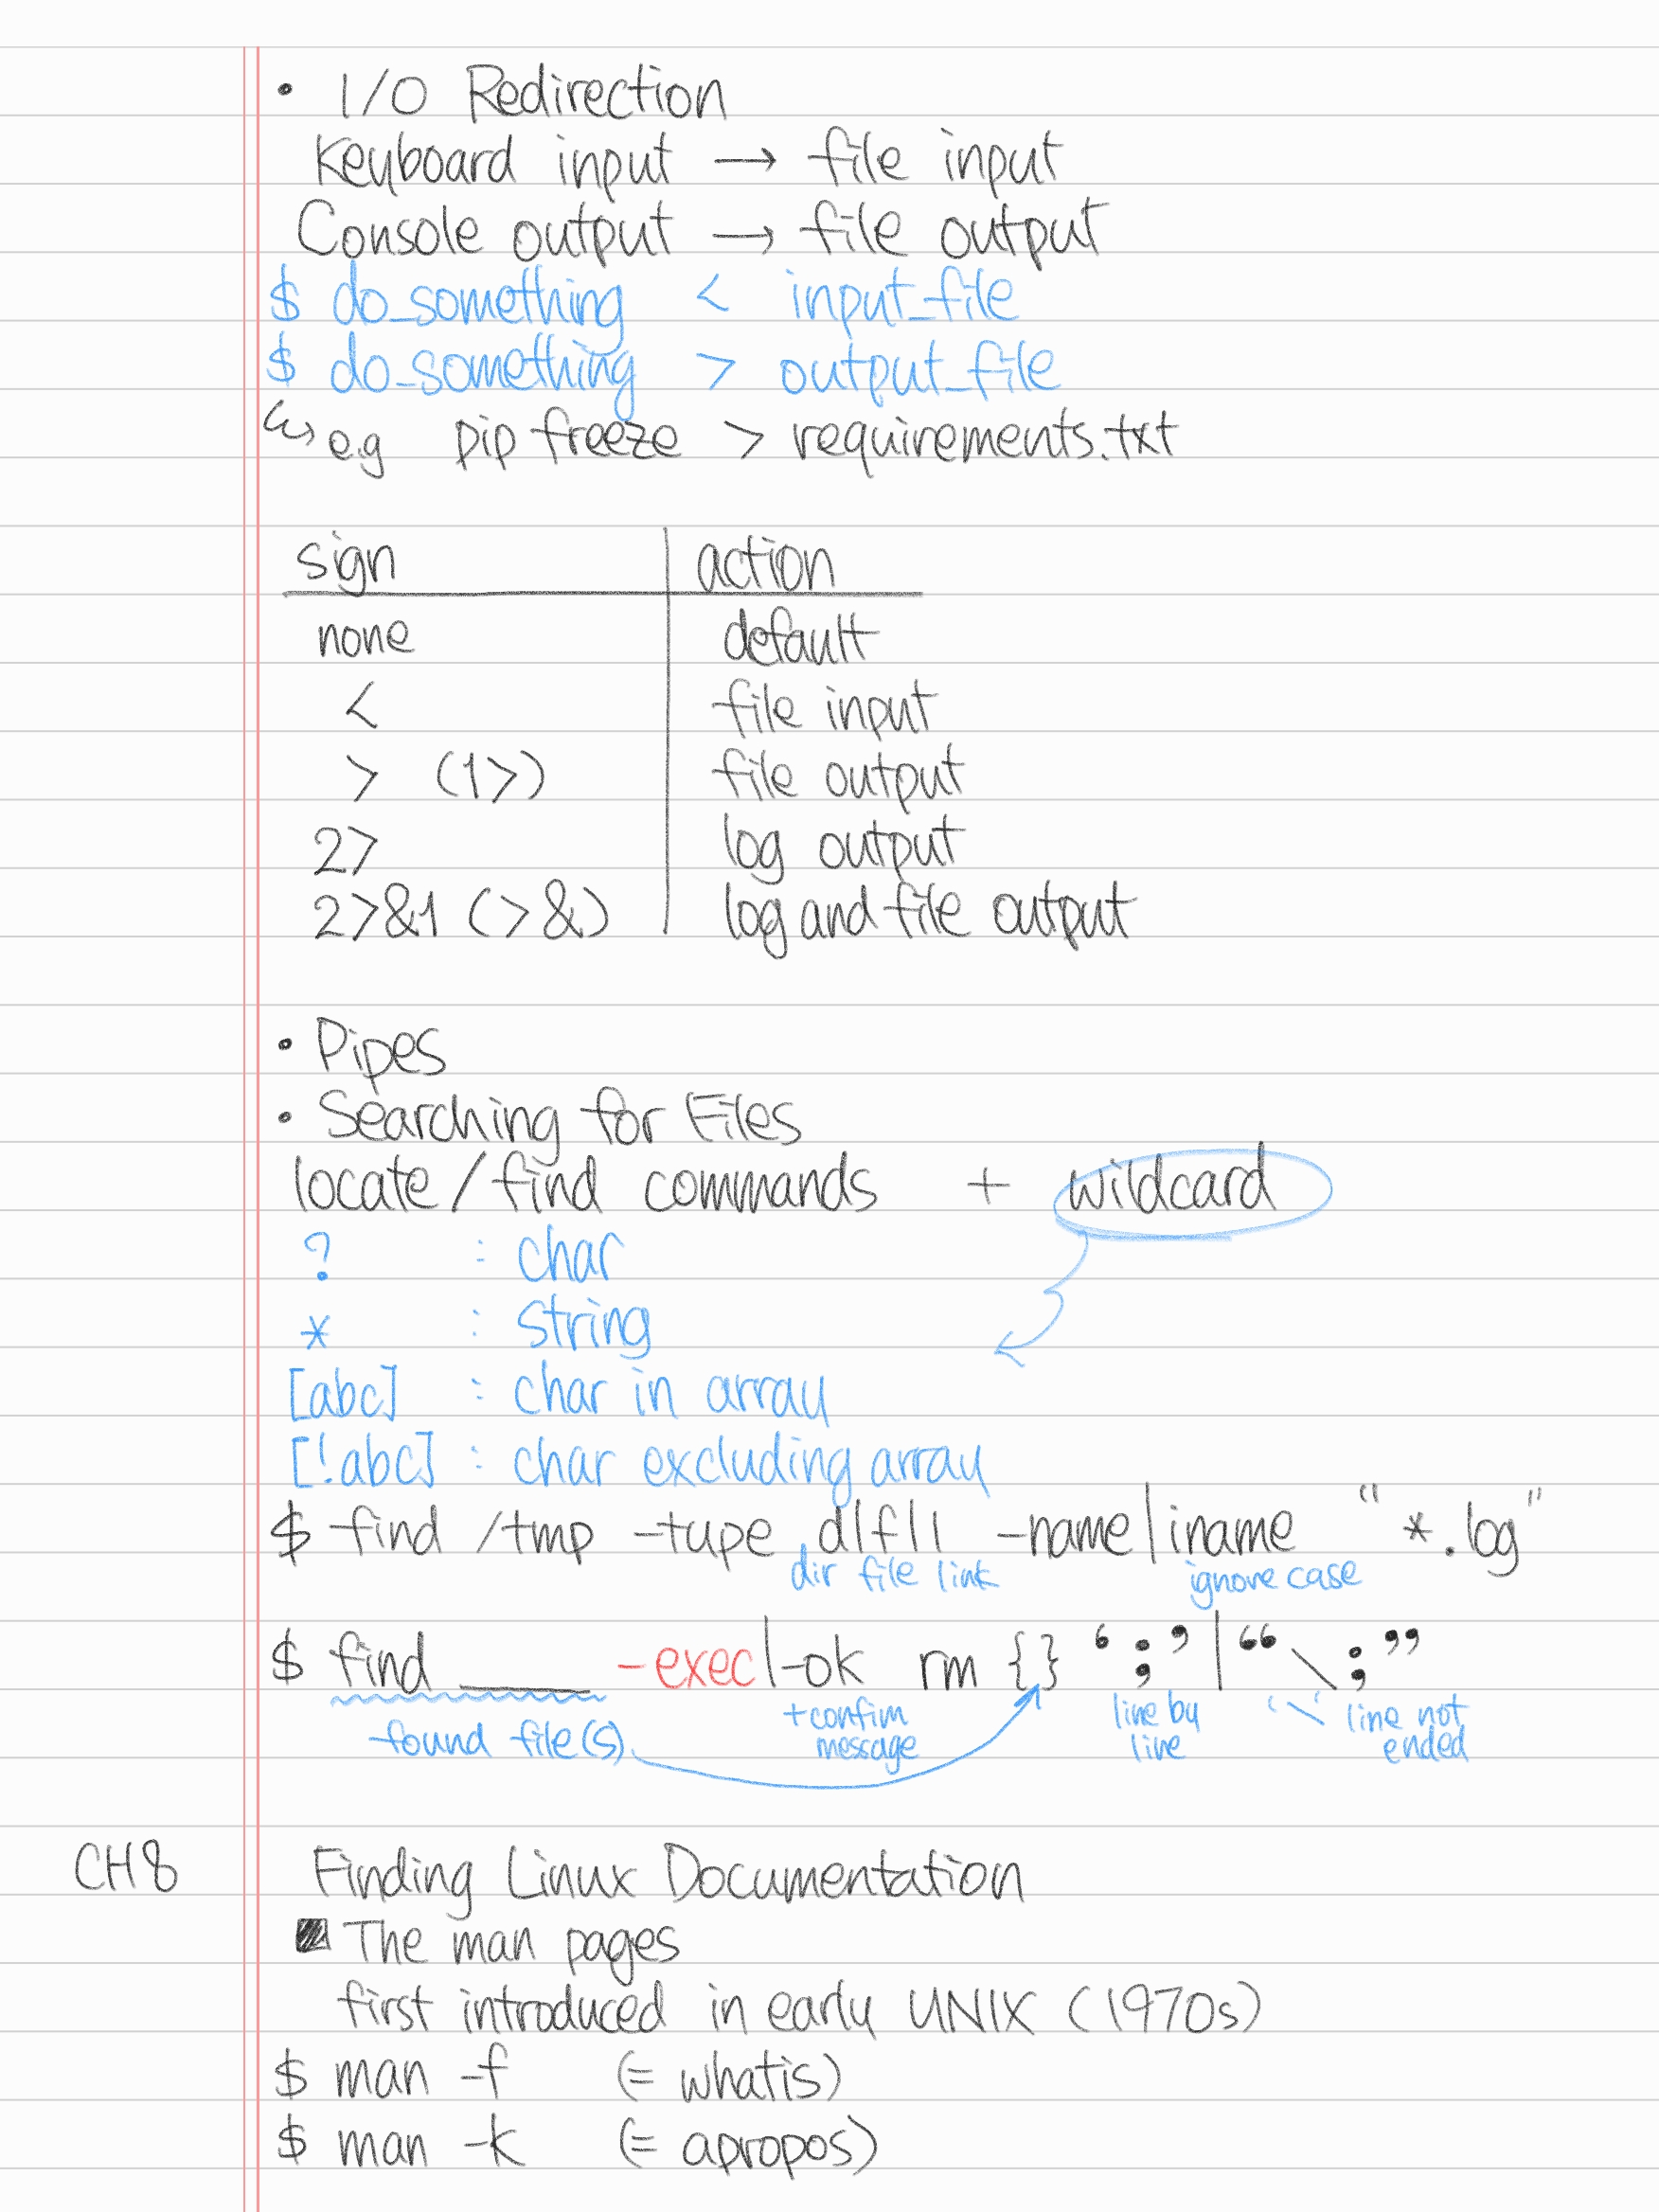 • I/O Redirection
Keyboard input → file input
Console output → file output
$ do_something < input_file
$ do_something > output_file
↪ e.g pip freeze > requirements.txt
sign | action
none | default
< | file input
> (1>) | file output
2> | log output
2>&1 (>&) | log and file output
• Pipes
• Searching for Files
locate/find commands + wildcard
? : char
* : string
[abc] : char in array
[!abc] : char excluding array
$ find /tmp -type d|f|l -name|iname "*.log"
dir file link ignore case
$ find ____ -exec|-ok rm {} ‘;’|“\;”
found file(s) +confim message line by line ‘\‘ line not ended
CH8 Finding Linux Documentation
■ The man pages
first introduced in early UNIX (1970s)
$ man -f (= whatis)
$ man -k (= apropos)